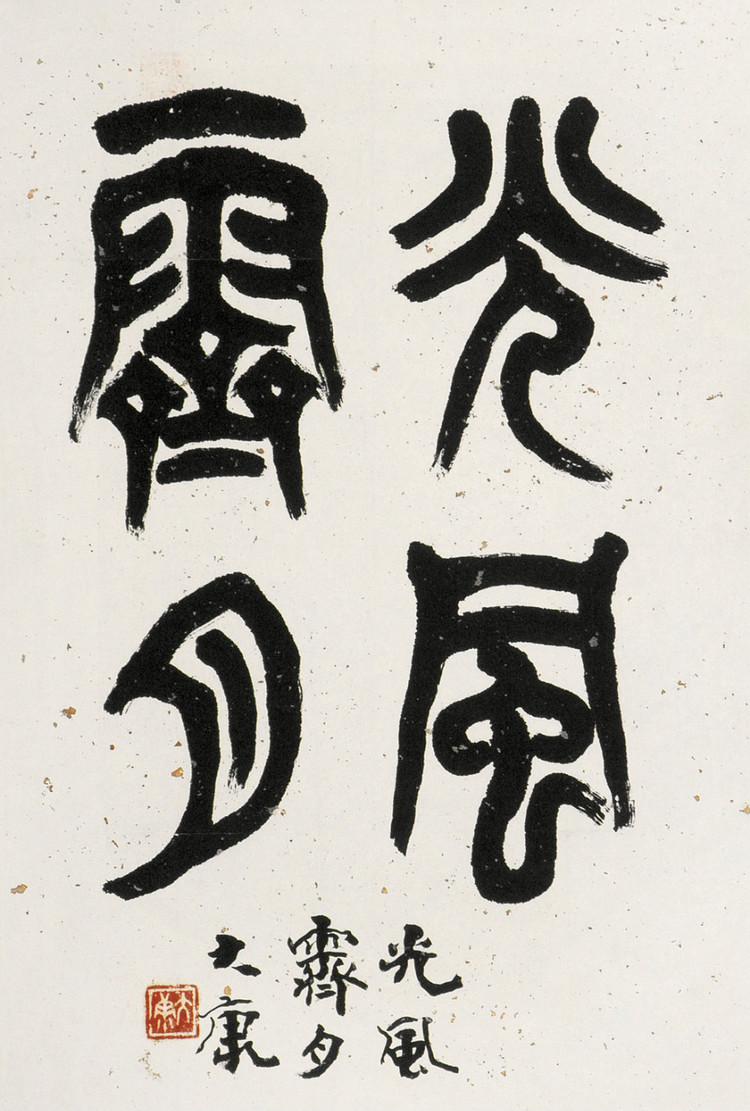 光風
霽月
光風
霽月
大康
大康